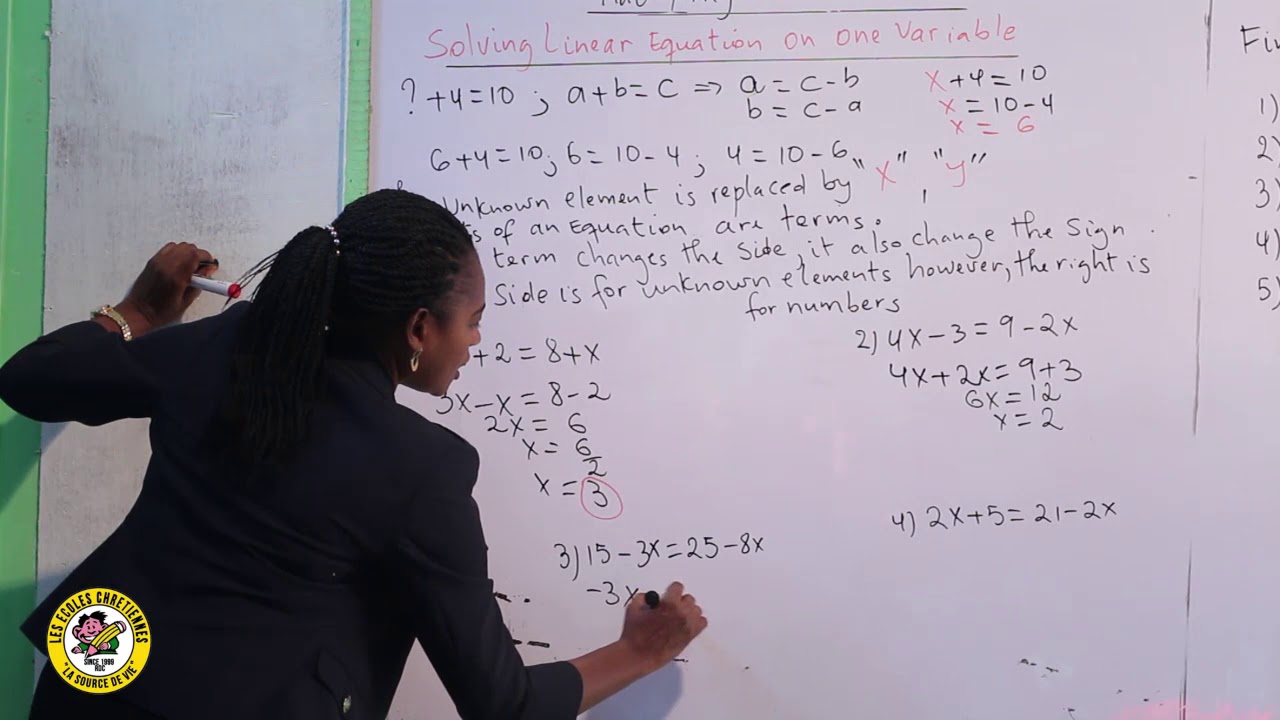 Solving Linear Equation on one Variable
? +4=10 ; a+b=c ⇒ a = c-b
b = c-a
x+4=10
x = 10-4
x = 6
6+4=10; 6=10-4; 4=10-6
Unknown element is replaced by "x", "y"
of an Equation are terms.
term changes the Side, it also change the Sign.
Side is for unknown elements however, the right is
for numbers
+2=8+x
3x-x=8-2
2x= 6
x= 6
2
x = 3
2) 4x-3=9-2x
4x+2x=9+3
6x=12
x=2
3) 15-3x=25-8x
-3x
4) 2x+5=21-2x
Fin
1)
2)
3)
4)
5)
LES ECOLES CHRETIENNES
SINCE 1999
RDC
"LA SOURCE DE VIE"